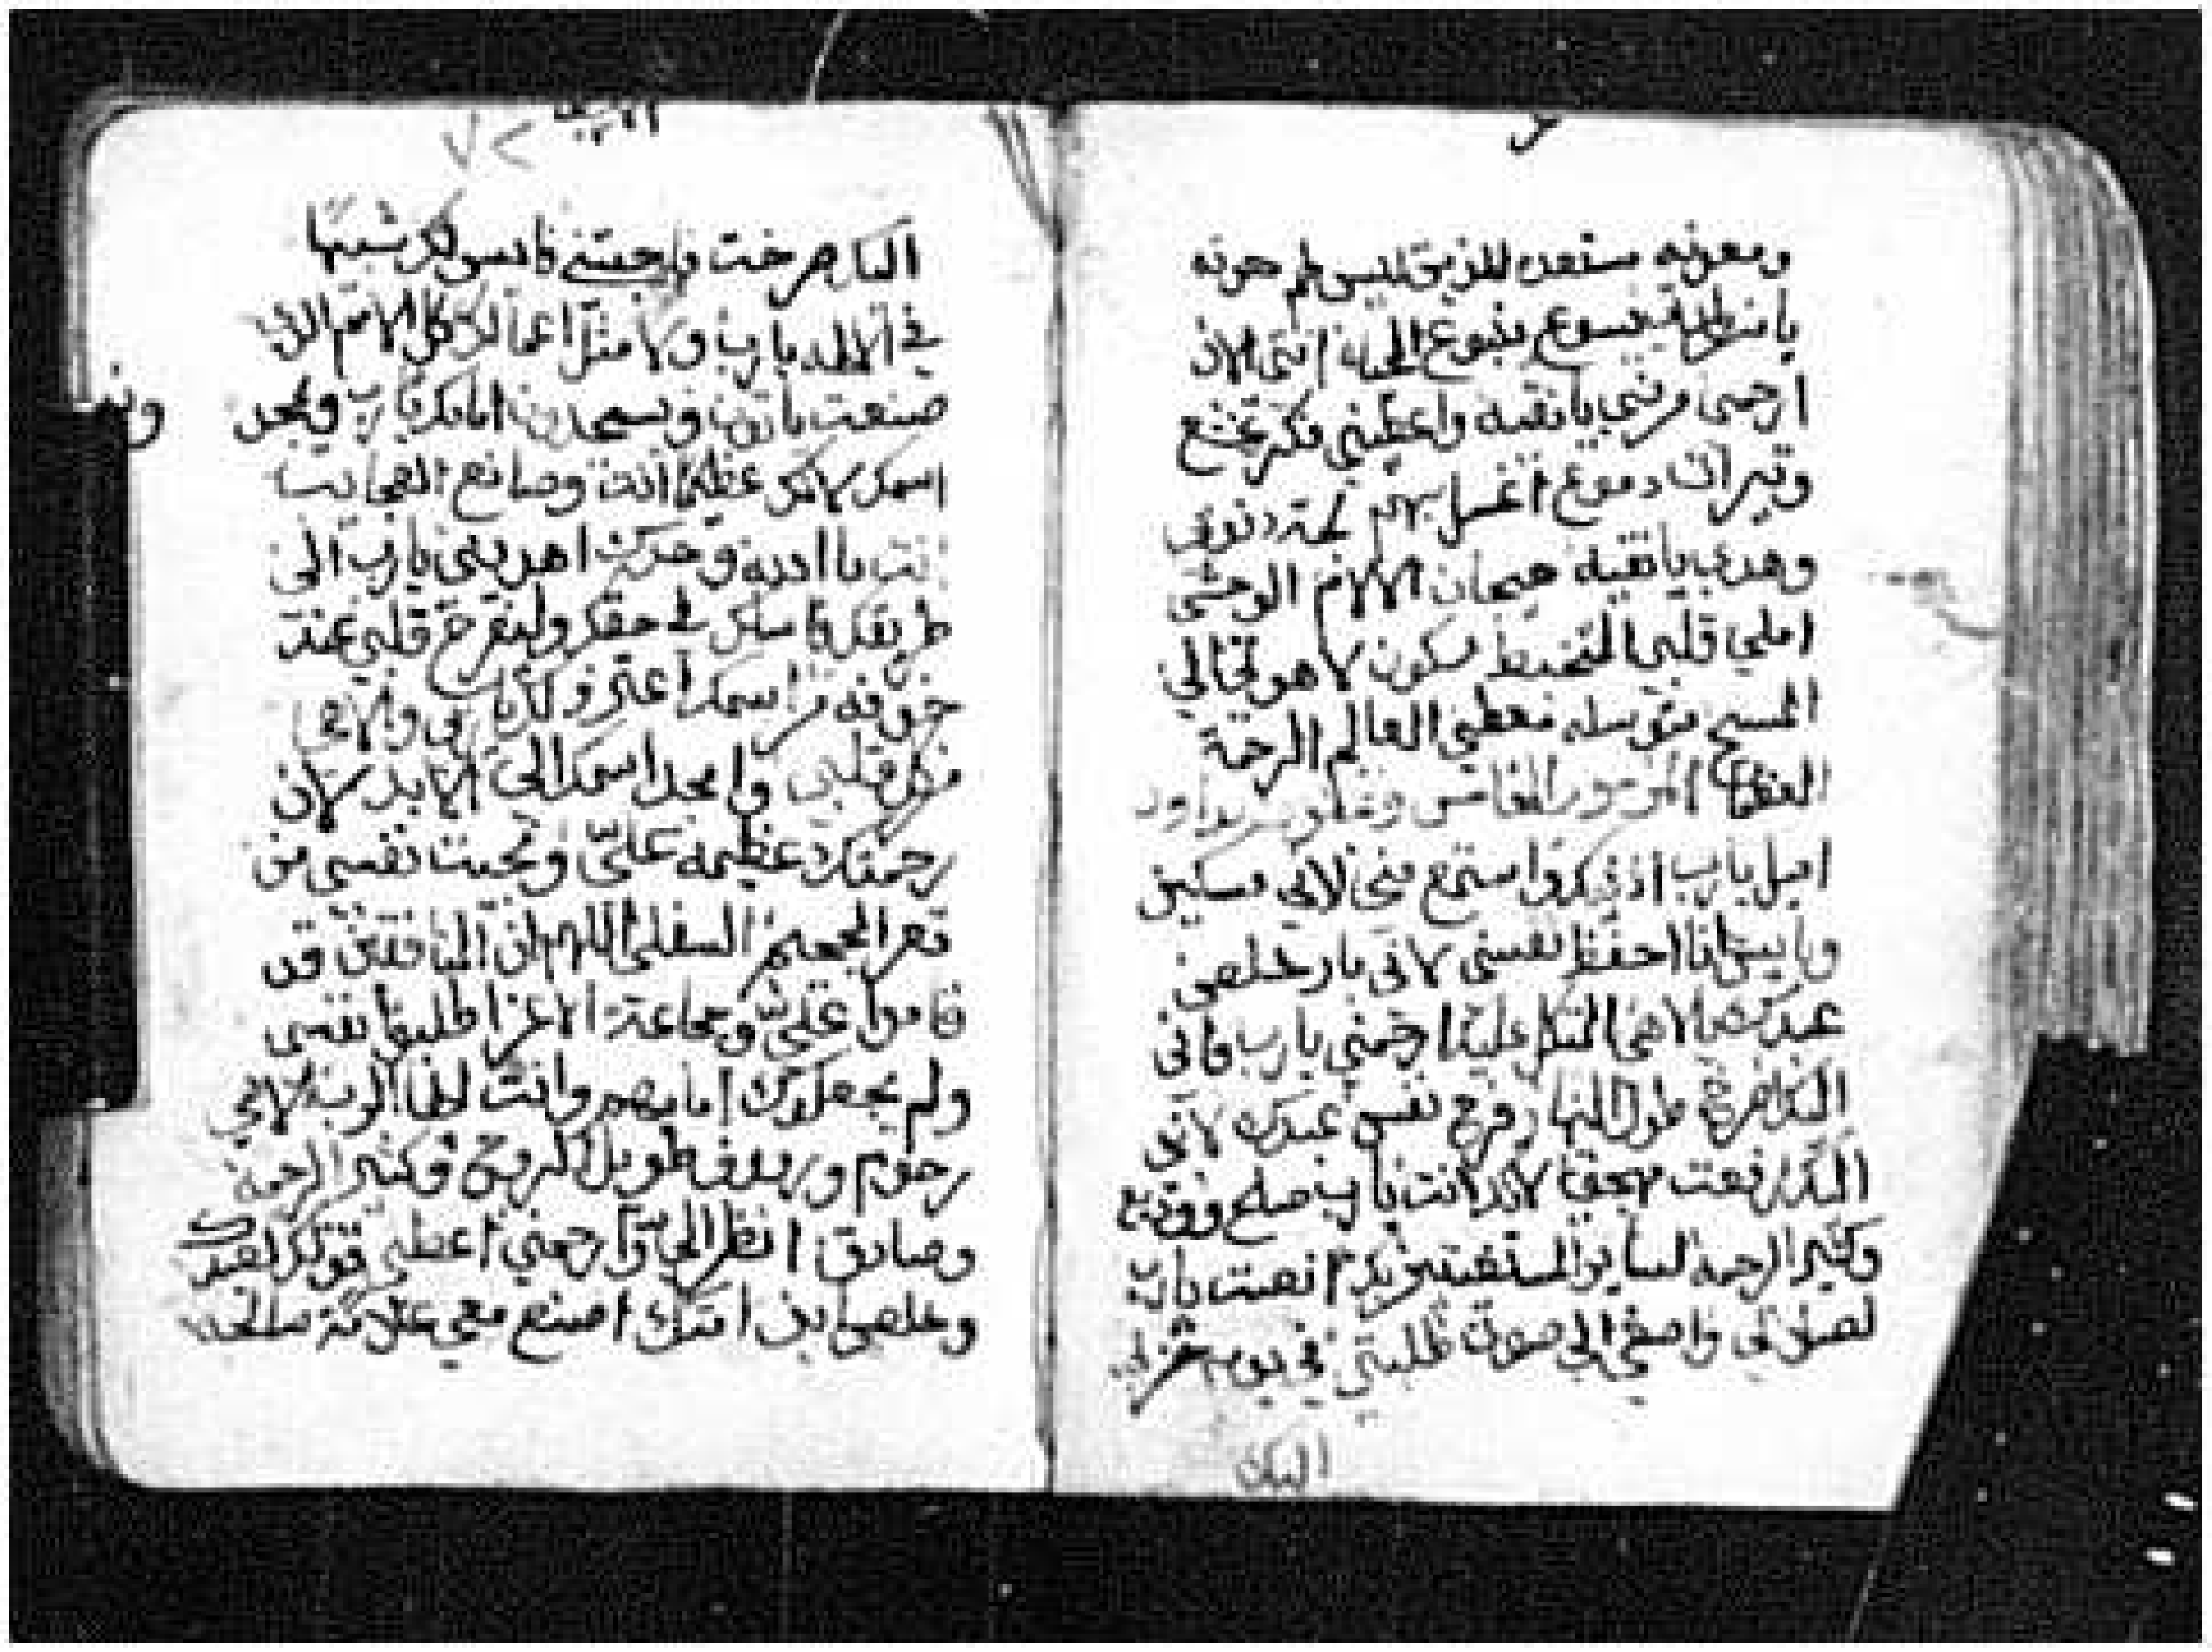 ومعونه مستعده للذين ليس لهم معونه
يا والدة يسوع ينبوع الحياة انتي الان
ارحمي مرنمي يا نقيه واعطيني فكر تخشع
وتيران دموع اغسل بهم دنوبي
وهدي يا نقيه هيجان الالام الوحشي
املي قلبي سكون لاهوتي الذي
المسيح متوسله معطي العالم الرحمة
العظما المزمور الخامس وثمانون لداود
اميل يا رب اذنيك واستمع مني لاني مسكين
وبايس انا احفظ نفسي لاني بار خلص
عبدك يا الاهي المتكل عليك ارحمني يا رب فاني
اليك اصرخ طول النهار فرح نفس عبدك لاني
اليك رفعت مهجتي لانك انت يا رب صالح ووديع
وكثير الرحمه لساير المستغيثين بك انصت يا رب
لصلاتي واصغي الي صوت طلبتي في يوم حزني
اليك
اليك صرخت فاجبتني فليس لك شبيها
في الالهه يا رب ولا مثل اعمالك كل الامم الذي
صنعت ياتون ويسجدون امامك يا رب ويمجدون
اسمك لانك عظيما انت وصانع العجايب
انت يا الله وحدك اهديني يا رب الى
طريقك فاسلك في حقك وليفرح قلبي عند
خوفه من اسمك اعترف لك يا رب والاهي
من كل قلبي وامجد اسمك الى الابد لان
رحمتك عظيمه عليّ ونجيت نفسي من
قعر الجحيم السفلي اللهم ان المنافقين قد
قاموا عليّ وجماعة الاعزا طلبوا نفسي
ولم يجعلوك امامهم وانت ايها الرب الاهي
رحوم وروف طويل الروح وكثير الرحمه
وصادق انظر الي وارحمني اعطي قوتك لعبدك
وخلص ابن امتك اصنع معي علامة صالحه